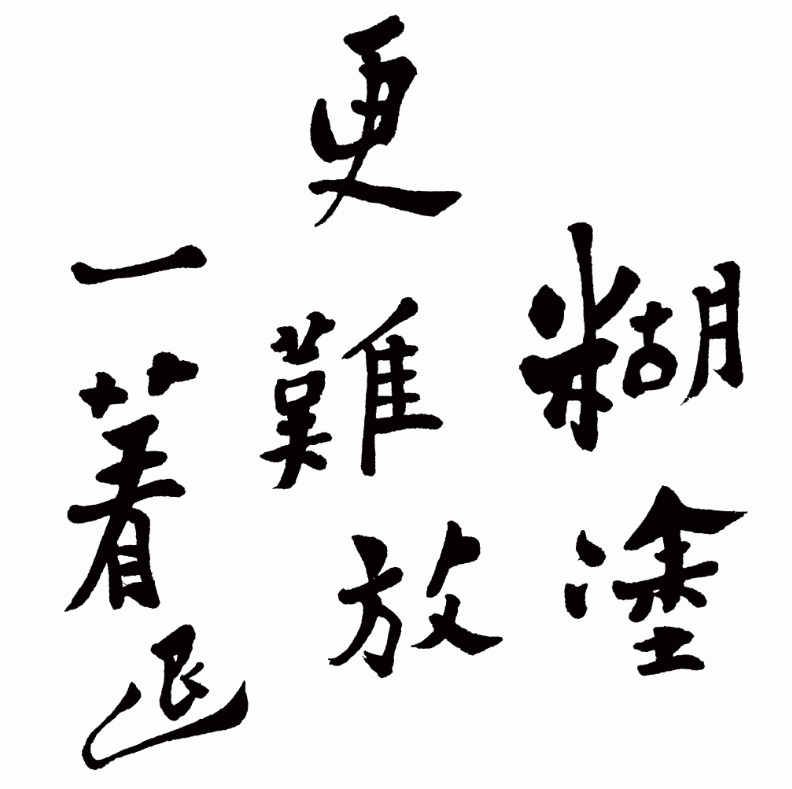 糊塗
更難放
一著退